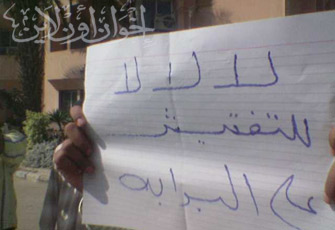 الحوار أون لاين
لا لا لا
للتفتيش
علي البوابه